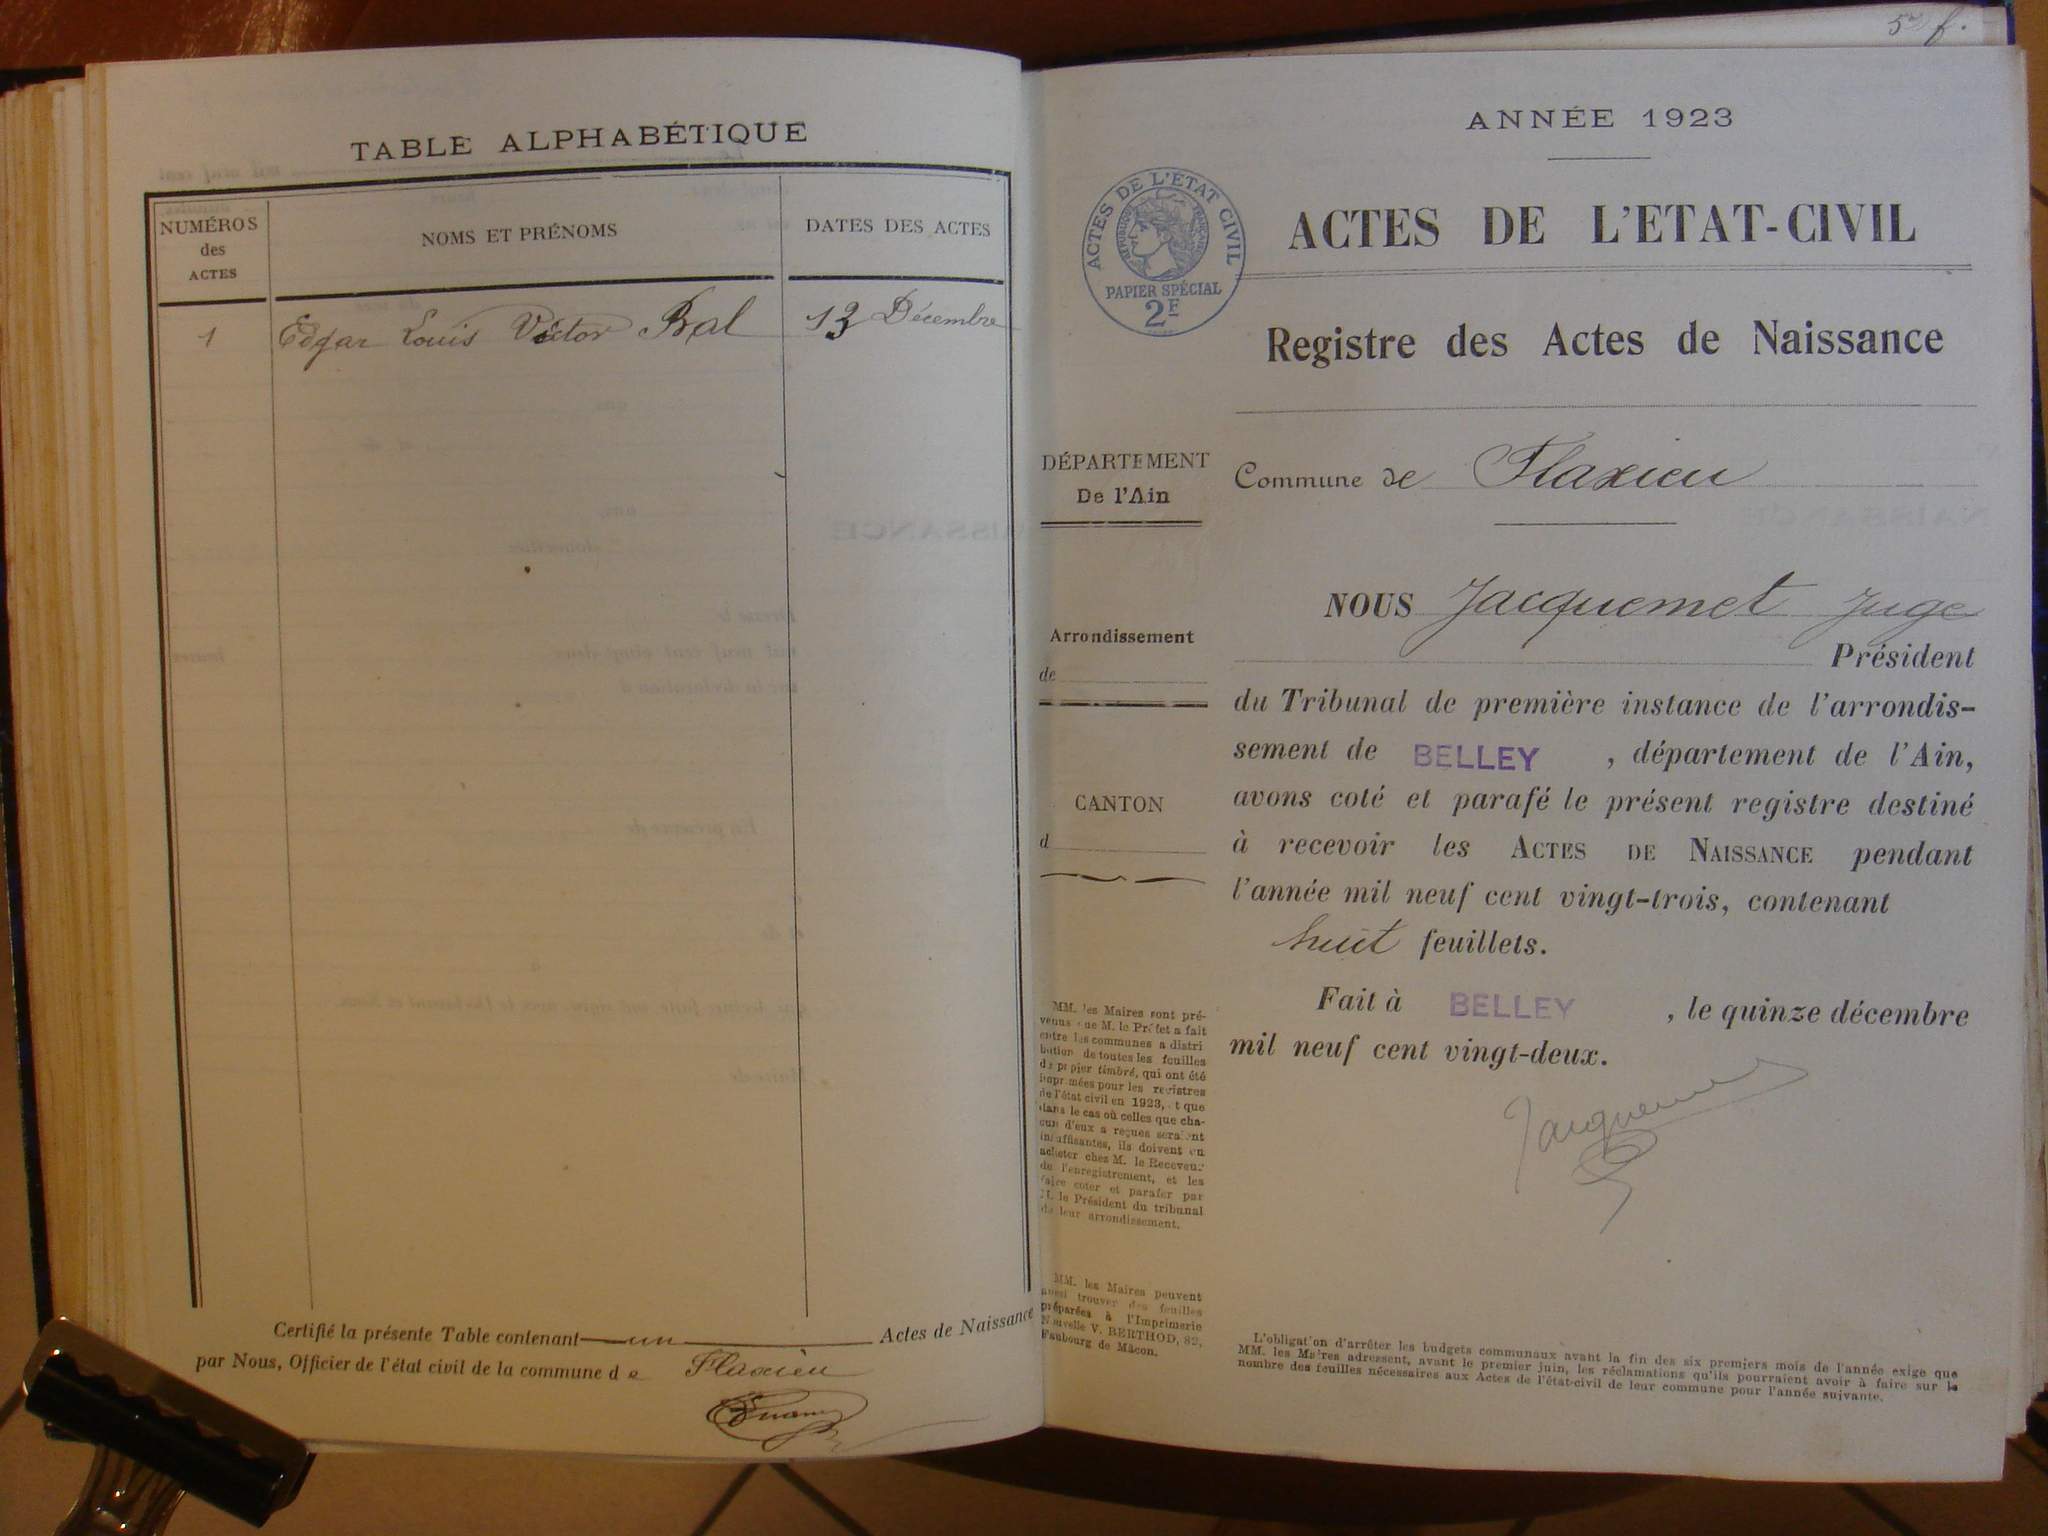 TABLE ALPHABÉTIQUE
NUMÉROS
des
ACTES
NOMS ET PRÉNOMS
DATES DES ACTES
1 Edgar Louis Victor Bal 13 Décembre
Certifié la présente Table contenant un Actes de Naissance
par Nous, Officier de l'état civil de la commune de Flaxieu
5 f.
ANNÉE 1923
ACTES DE L'ÉTAT CIVIL
RÉPUBLIQUE FRANÇAISE
PAPIER SPÉCIAL
2F
ACTES DE L'ETAT-CIVIL
Registre des Actes de Naissance
DÉPARTEMENT
De l'Ain
Commune de Flaxieu
Arrondissement
de
CANTON
d
NOUS Jacquemet Juge
Président
du Tribunal de première instance de l'arrondis-
sement de BELLEY, département de l'Ain,
avons coté et parafé le présent registre destiné
à recevoir les ACTES DE NAISSANCE pendant
l'année mil neuf cent vingt-trois, contenant
huit feuillets.
Fait à BELLEY, le quinze décembre
mil neuf cent vingt-deux.
Jacquemet
MM. les Maires sont pré-
venus que M. le Préfet a fait
entre les communes a distri
bution de toutes les feuilles
de papier timbré, qui ont été
imprimées pour les registres
de l'état civil en 1923, et que
dans le cas où celles que cha-
cun d'eux a reçues seraient
insuffisantes, ils doivent en
acheter chez M. le Receveur
de l'enregistrement, et les
faire coter et parafer par
M. le Président du tribunal
de leur arrondissement.
MM. les Maires peuvent
aussi trouver des feuilles
préparées à l'Imprimerie
Nouvelle V. BERTHOD, 82,
Faubourg de Mâcon.
L'obligation d'arrêter les budgets communaux avant la fin des six premiers mois de l'année exige que
MM. les Maires adressent, avant le premier juin, les réclamations qu'ils pourraient avoir à faire sur le
nombre des feuilles nécessaires aux Actes de l'état-civil de leur commune pour l'année suivante.